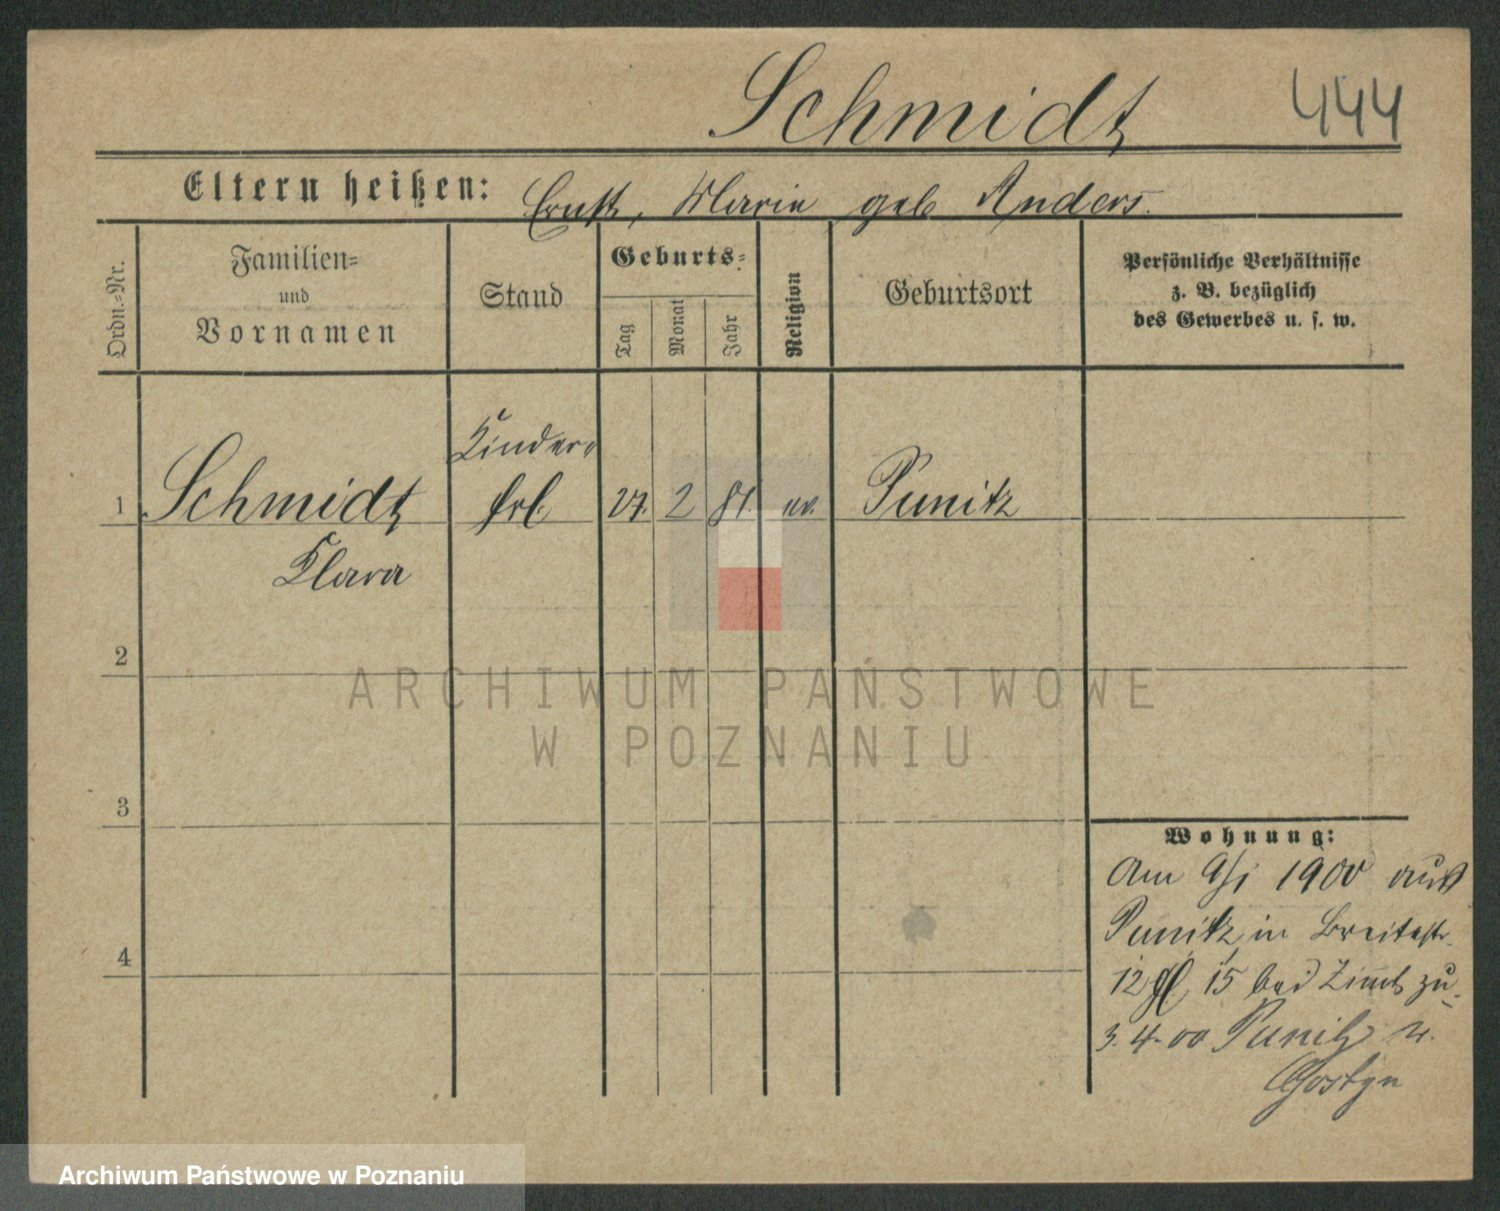 Schmidt 444
Eltern heißen: Ernst, Marie geb Anders.
Ordn.=Nr.
Familien=
und
Vornamen
Stand
Geburts=
Tag
Monat
Jahr
Religion
Geburtsort
Persönliche Verhältnisse
z. B. bezüglich
des Gewerbes u. s. w.
Kinder=
1 Schmidt frl. 27. 2 81. ev. Punitz
Klara
2
3
4
Wohnung:
Am 9/1 1900 aus
Punitz in Breitestr.
12 15 bei zu.
3.4.00 Punitz n.
Gostyn
ARCHIWUM PAŃSTWOWE
W POZNANIU
Archiwum Państwowe w Poznaniu